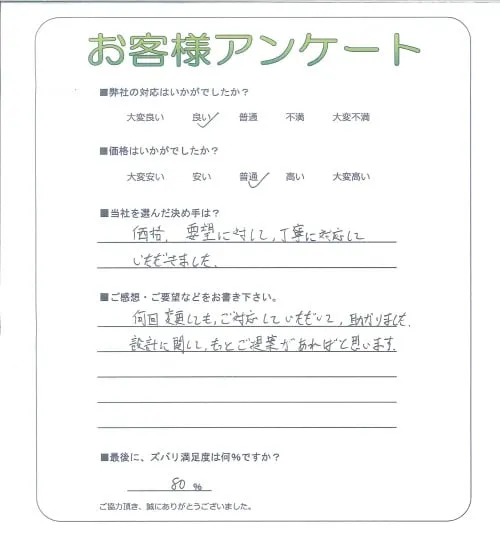 お客様アンケート
■弊社の対応はいかがでしたか？
大変良い 良い 普通 不満 大変不満
■価格はいかがでしたか？
大変安い 安い 普通 高い 大変高い
■当社を選んだ決め手は？
価格、要望に対して、丁寧に対応して
いただきました。
■ご感想・ご要望などをお書き下さい。
何回変更しても、ご対応していただいて、助かりました。
設計に関して、もっとご提案があればと思います。
■最後に、ズバリ満足度は何%ですか？
80 %
ご協力頂き、誠にありがとうございました。